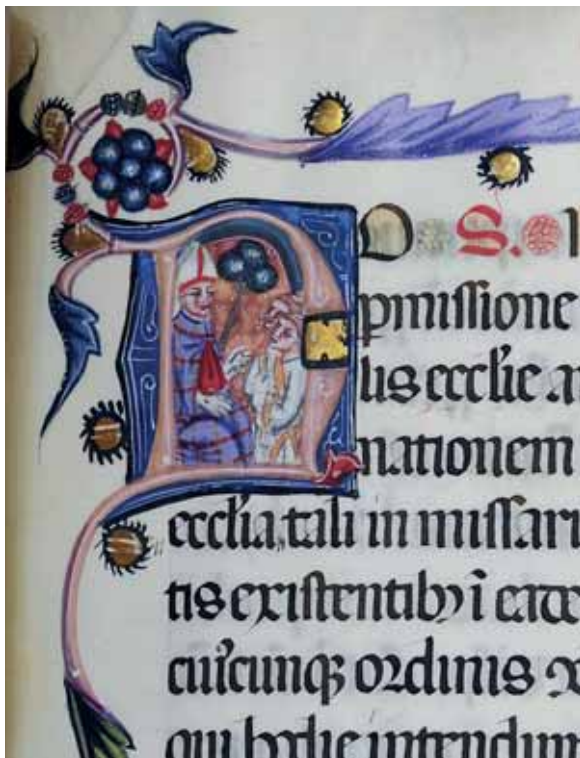 N O S. I
pmissione
lis ecclie
nationem
ecclia, tali in missar
tis existentibȝ ī
cuiꝰcunqȝ ordinis
qui hodie intendun